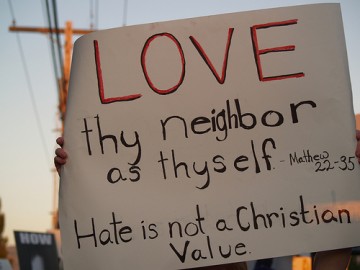 LOVE
thy neighbor
as thyself. - Mathew
22-35
Hate is not a Christian
Value.
HOW